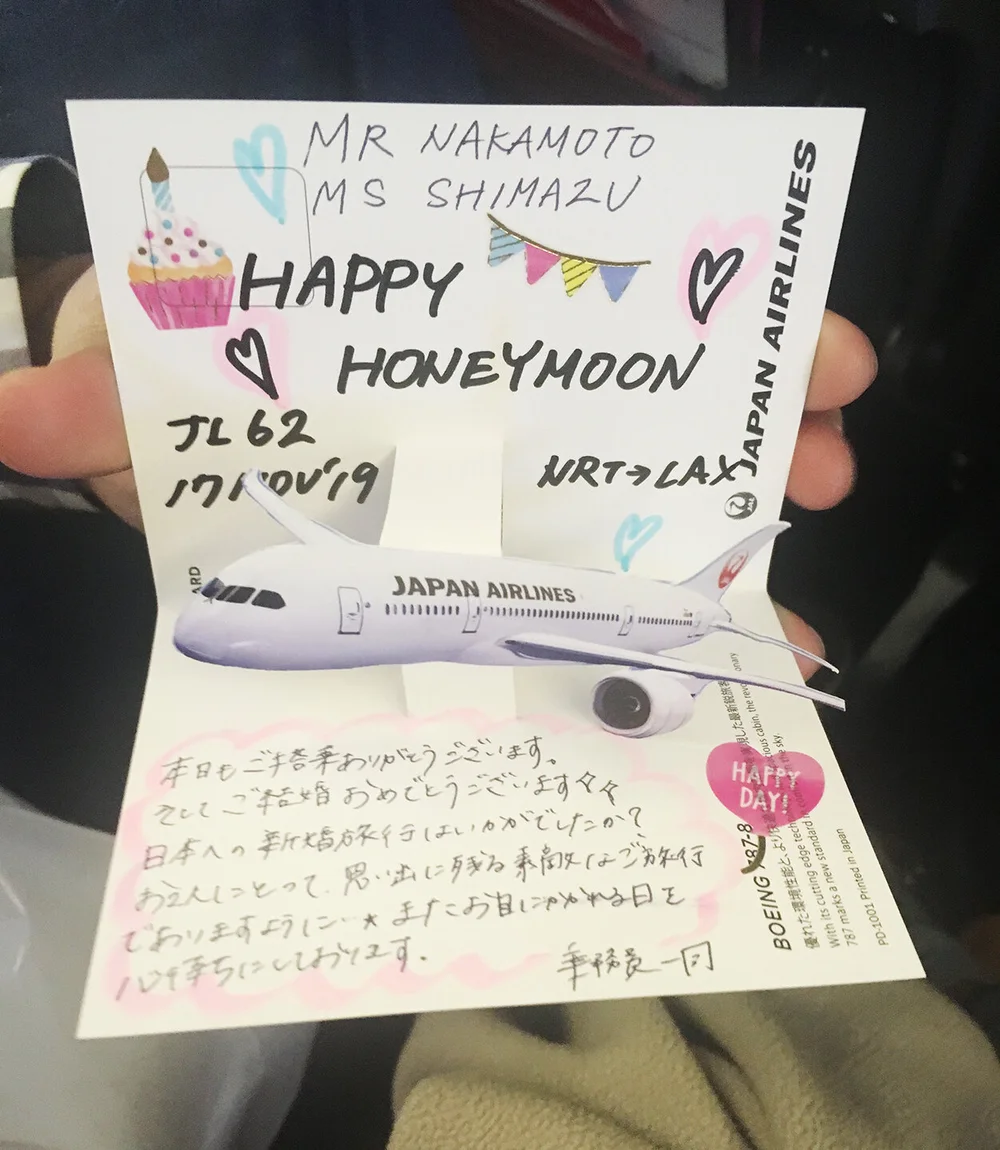 MR NAKAMOTO
MS SHIMAZU
HAPPY
HONEYMOON
JL 62
17 NOV '19
NRT→LAX
JAPAN AIRLINES
JAL
ARD
JAPAN AIRLINES
本日もご搭乗ありがとうございます。
そしてご結婚おめでとうございます☆☆
日本への新婚旅行はいかがでしたか?
お2人にとって、思い出に残る素敵なご旅行
でありますように…★ またお目にかかれる日を
心待ちにしております。
乗務員一同
HAPPY
DAY!
BOEING 787-8
優れた環境性能と、より快適
現した最新鋭旅客
With its cutting edge tech
cious cabin, the
787 marks a new standard
in the sky.
PD-1001 Printed in Japan